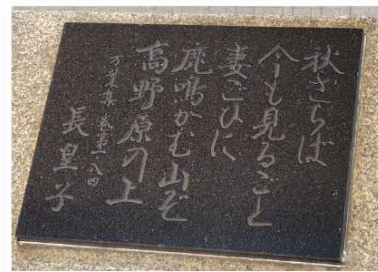 秋さらば
今も見るごと
妻ごひに
鹿鳴かむ山ぞ
高野原の上
万葉集 巻第一 八四
長皇子